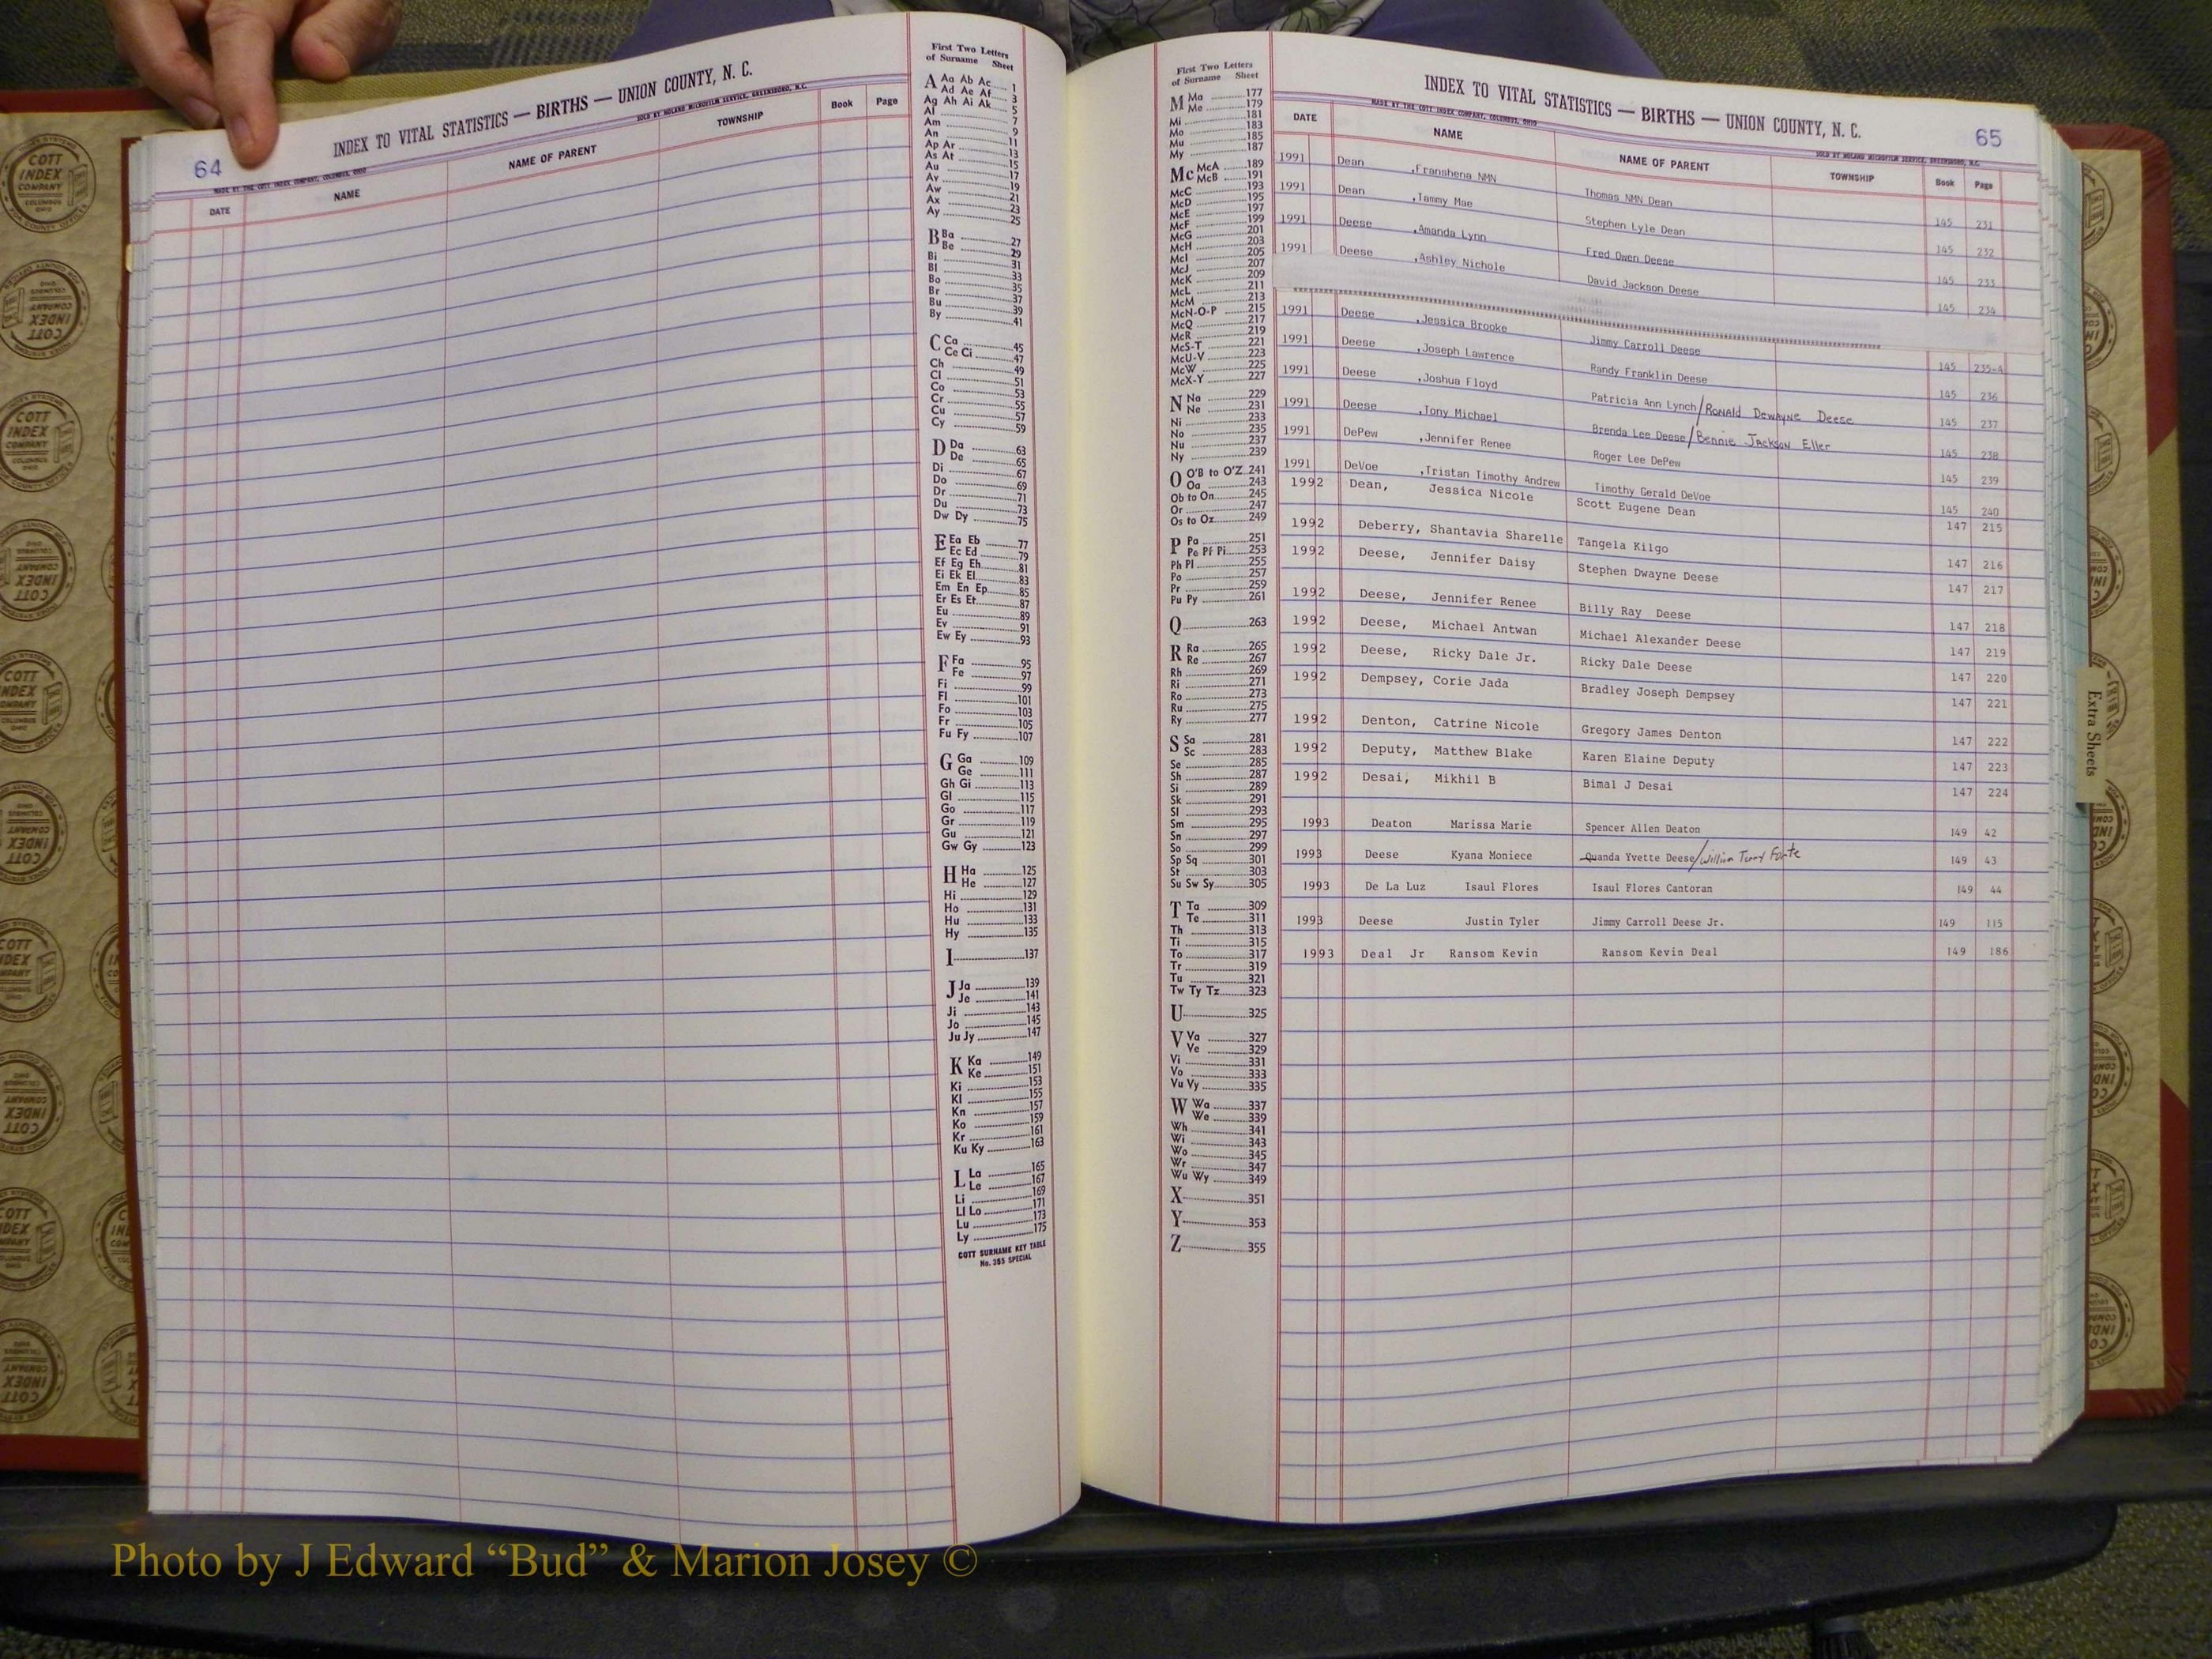 64
INDEX TO VITAL STATISTICS — BIRTHS — UNION COUNTY, N. C.
MADE BY THE COTT INDEX COMPANY, COLUMBUS, OHIO
SOLD BY NOLAND MICROFILM SERVICE, GREENSBORO, N.C.
DATE NAME NAME OF PARENT TOWNSHIP Book Page
First Two Letters
of Surname Sheet
A Aa Ab Ac 1
Ad Ae Af 3
Ag Ah Ai Ak 5
Al 7
Am 9
An 11
Ap Ar 13
As At 15
Au 17
Av 19
Aw 21
Ax 23
Ay 25
B Ba 27
Be 29
Bi 31
Bl 33
Bo 35
Br 37
Bu 39
By 41
C Ca 45
Ce Ci 47
Ch 49
Cl 51
Co 53
Cr 55
Cu 57
Cy 59
D Da 63
De 65
Di 67
Do 69
Dr 71
Du 73
Dw Dy 75
E Ea Eb 77
Ec Ed 79
Ef Eg Eh 81
Ei Ek El 83
Em En Ep 85
Er Es Et 87
Eu 89
Ev 91
Ew Ey 93
F Fa 95
Fe 97
Fi 99
Fl 101
Fo 103
Fr 105
Fu Fy 107
G Ga 109
Ge 111
Gh Gi 113
Gl 115
Go 117
Gr 119
Gu 121
Gw Gy 123
H Ha 125
He 127
Hi 129
Ho 131
Hu 133
Hy 135
I 137
J Ja 139
Je 141
Ji 143
Jo 145
Ju Jy 147
K Ka 149
Ke 151
Ki 153
Kl 155
Kn 157
Ko 159
Kr 161
Ku Ky 163
L La 165
Le 167
Li 169
Ll Lo 171
Lu 173
Ly 175
COTT SURNAME KEY TABLE
No. 355 SPECIAL
First Two Letters
of Surname Sheet
M Ma 177
Me 179
Mi 181
Mo 183
Mu 185
My 187
Mc McA 189
McB 191
McC 193
McD 195
McE 197
McF 199
McG 201
McH 203
McI 205
McJ 207
McK 209
McL 211
McM 213
McN-O-P 215
McQ 217
McR 219
McS-T 221
McU-V 223
McW 225
McX-Y 227
N Na 229
Ne 231
Ni 233
No 235
Nu 237
Ny 239
O O'B to O'Z 241
Oa 243
Ob to On 245
Or 247
Os to Oz 249
P Pa 251
Pe Pf Pi 253
Ph Pl 255
Po 257
Pr 259
Pu Py 261
Q 263
R Ra 265
Re 267
Rh 269
Ri 271
Ro 273
Ru 275
Ry 277
S Sa 281
Sc 283
Se 285
Sh 287
Si 289
Sk 291
Sl 293
Sm 295
Sn 297
So 299
Sp Sq 301
St 303
Su Sw Sy 305
T Ta 309
Te 311
Th 313
Ti 315
To 317
Tr 319
Tu 321
Tw Ty Tz 323
U 325
V Va 327
Ve 329
Vi 331
Vo 333
Vu Vy 335
W Wa 337
We 339
Wh 341
Wi 343
Wo 345
Wr 347
Wu Wy 349
X 351
Y 353
Z 355
65
INDEX TO VITAL STATISTICS — BIRTHS — UNION COUNTY, N. C.
MADE BY THE COTT INDEX COMPANY, COLUMBUS, OHIO
SOLD BY NOLAND MICROFILM SERVICE, GREENSBORO, N.C.
DATE NAME NAME OF PARENT TOWNSHIP Book Page
1991 Dean ,Franshena NMN Thomas NMN Dean 145 231
1991 Dean ,Tammy Mae Stephen Lyle Dean 145 232
1991 Deese ,Amanda Lynn Fred Owen Deese 145 233
1991 Deese ,Ashley Nichole David Jackson Deese 145 234
1991 Deese ,Jessica Brooke Jimmy Carroll Deese 145 235-A
1991 Deese ,Joseph Lawrence Randy Franklin Deese 145 236
1991 Deese ,Joshua Floyd Patricia Ann Lynch/Ronald Dewayne Deese 145 237
1991 Deese ,Tony Michael Brenda Lee Deese/Bennie Jackson Eller 145 238
1991 DePew ,Jennifer Renee Roger Lee DePew 145 239
1991 DeVoe ,Tristan Timothy Andrew Timothy Gerald DeVoe 145 240
1992 Dean, Jessica Nicole Scott Eugene Dean 147 215
1992 Deberry, Shantavia Sharelle Tangela Kilgo 147 216
1992 Deese, Jennifer Daisy Stephen Dwayne Deese 147 217
1992 Deese, Jennifer Renee Billy Ray Deese 147 218
1992 Deese, Michael Antwan Michael Alexander Deese 147 219
1992 Deese, Ricky Dale Jr. Ricky Dale Deese 147 220
1992 Dempsey, Corie Jada Bradley Joseph Dempsey 147 221
1992 Denton, Catrine Nicole Gregory James Denton 147 222
1992 Deputy, Matthew Blake Karen Elaine Deputy 147 223
1992 Desai, Mikhil B Bimal J Desai 147 224
1993 Deaton Marissa Marie Spencer Allen Deaton 149 42
1993 Deese Kyana Moniece Quanda Yvette Deese/William Terry Forte 149 43
1993 De La Luz Isaul Flores Isaul Flores Cantoran 149 44
1993 Deese Justin Tyler Jimmy Carroll Deese Jr. 149 115
1993 Deal Jr Ransom Kevin Ransom Kevin Deal 149 186
Extra Sheets
COTT INDEX COMPANY
Photo by J Edward “Bud” & Marion Josey ©